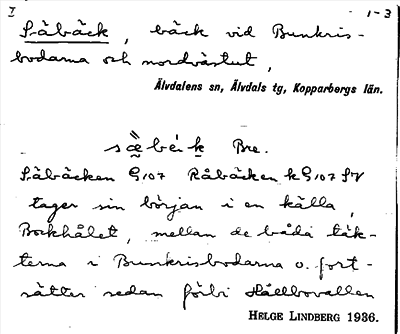 I 1-3
Såbäck, bäck vid Bunkris-
bodarna och nordvästut,
Älvdalens sn, Älvdals tg, Kopparbergs län.
Bre.
Såbäcken G107 Råbäcken kG107 SV
tager sin början i en källa,
Bockhålet, mellan de båda täk-
terna i Bunkrisbodarna o. fort-
sätter sedan förbi Hållbovallen
HELGE LINDBERG 1936.